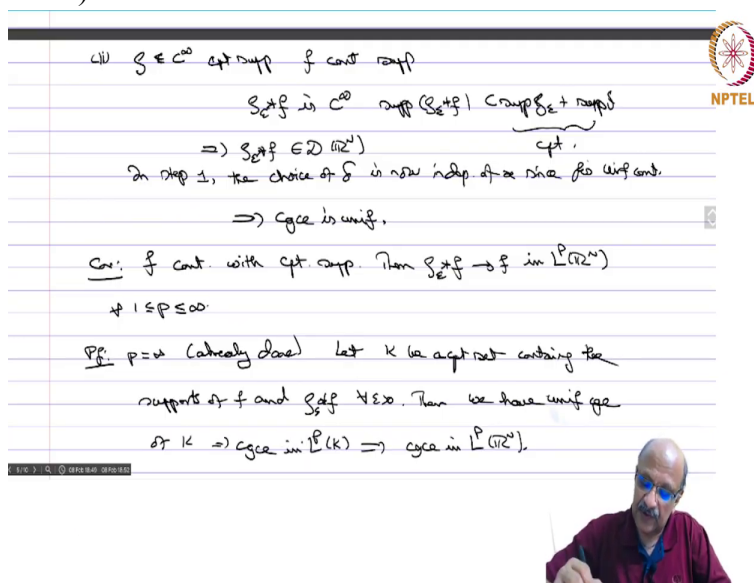 (ii) ρ ∈ C^∞ cpt supp f cont supp
ρ_ε*f is C^∞ supp(ρ_ε*f) ⊂ supp ρ_ε + supp f
cpt.
⇒ ρ_ε*f ∈ D(ℝ^N)
In step 1, the choice of δ is now indep. of x since f is unif cont.
⇒ cgce is unif.
Cor: f cont. with cpt. supp. Then ρ_ε*f → f in L^p(ℝ^N)
∀ 1 ≤ p ≤ ∞.
Pf: p=∞ (already done) Let K be a cpt set containing the
supports of f and ρ_ε*f ∀ ε>0. Then we have unif cge
of K ⇒ cgce in L^p(K) ⇒ cgce in L^p(ℝ^N).
NPTEL
5/10
08 Feb 18:49 08 Feb 18:52